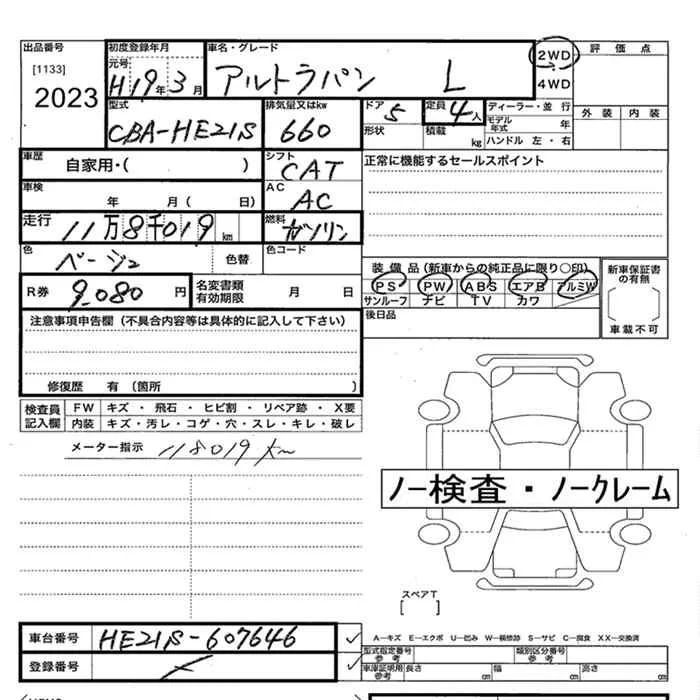 出品番号 初度登録年月 車名・グレード 2WD 評価点
[1133] 元号 H19年3月 アルトラパン L 4WD
2023 型式 排気量又はkw ドア 5 定員 4人 ディーラー・並行 外装 内装
CBA-HE21S 660 形状 積載 kg モデル年式 年
ハンドル 左・右
車歴 自家用・( ) シフト CAT 正常に機能するセールスポイント
車検 年 月( 日) AC AC
走行 11万8千019km 燃料 ガソリン
色 ベージュ 色替 色コード 装備品(新車からの純正品に限り○印) 新車保証書の有無
R券 9,080円 名変書類有効期限 月 日 PS PW ABS エアB アルミW
サンルーフ ナビ TV カワ
注意事項申告欄(不具合内容等は具体的に記入して下さい) 後日品 車載不可
修復歴 有(箇所 )
検査員記入欄 FW キズ・飛石・ヒビ割・リペア跡・X要
内装 キズ・汚レ・コゲ・穴・スレ・キレ・破レ
メーター指示 118019km
ノー検査・ノークレーム
スペアT
[ ]
車台番号 HE21S-607646 ✓ A―キズ E―エクボ U―凹み W―補修跡 S―サビ C―腐食 XX―交換済
登録番号 ✓ 型式指定番号参考 類別区分番号参考
車庫証明用参考 長さ cm 幅 cm 高さ cm